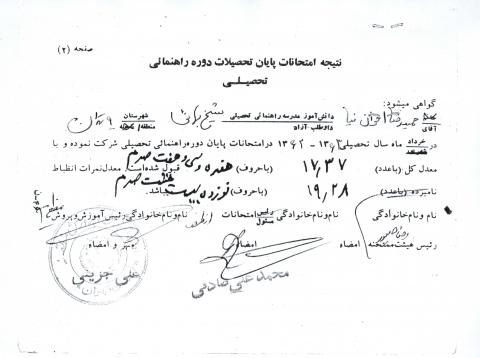 صفحه (۲)
نتیجه امتحانات پایان تحصیلات دوره راهنمائی
تحصیلـی
گواهی میشود:
آقای حمیدرضا نیا دانش‌آموز مدرسه راهنمائی تحصیلی شیخ شهرستان تهران
داوطلب آزاد منطقه ۹
خرداد ماه سال تحصیلی ۱۳۶۳ - ۱۳۶۲ در امتحانات پایان دوره راهنمائی تحصیلی شرکت نموده و با
معدل کل (باعدد) ۱۷,۳۷ (باحروف) هفده و سی و هفت صدم قبول شده‌است. معدل نمرات انظباط
نامبرده (باعدد) ۱۹,۲۸ (باحروف) نوزده بیست هشت صدم میباشد.
نام و نام‌خانوادگی نام و نام‌خانوادگی رئیس مسئول امتحانات نام و نام‌خانوادگی رئیس آموزش و پرورش
رئیس هیئت ممتحنه امضاء امضاء مهر و امضاء
محمد علی صادقی
علی جزینی